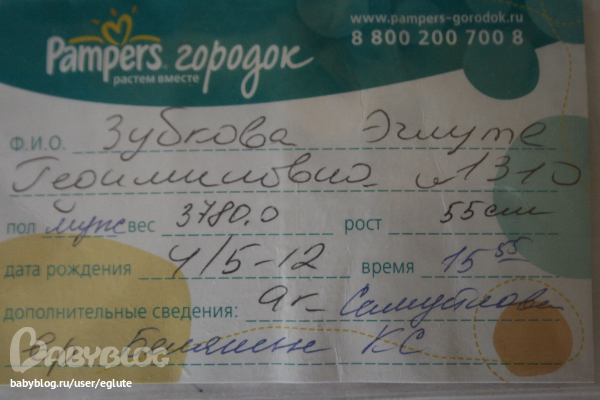 www.pampers-gorodok.ru
8 800 200 700 8
Pampers городок
растем вместе
Ф.И.О. Зубкова Эглуте
Гедиминовна 1310
пол Муж вес 3780,0 рост 55 см
дата рождения 4/5-12 время 15 55
дополнительные сведения:
Вр. КС
BABYBLOG
babyblog.ru/user/eglute